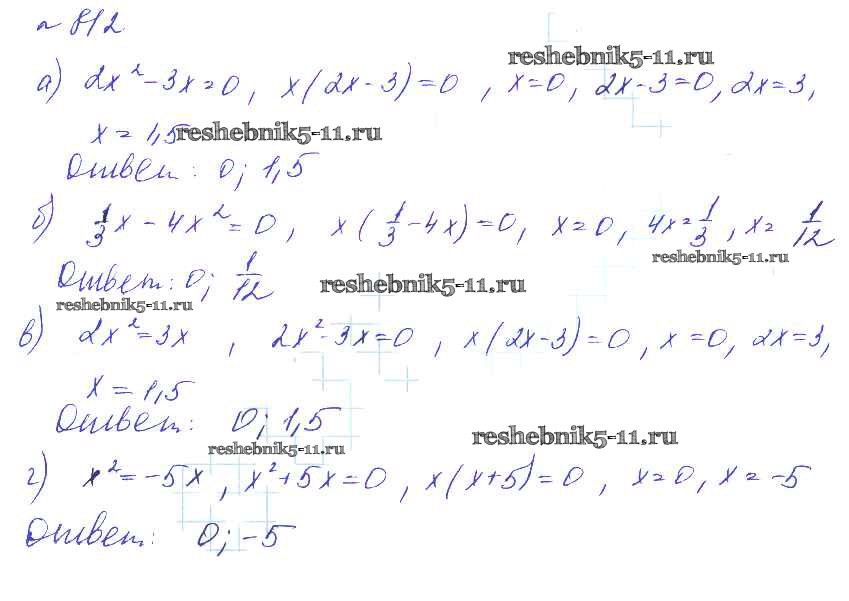 № 812
reshebnik5-11.ru
а) 2x² - 3x = 0, x(2x - 3) = 0, x = 0, 2x - 3 = 0, 2x = 3,
x = 1,5 reshebnik5-11.ru
Ответ: 0; 1,5
б) 1/3 x - 4x² = 0, x(1/3 - 4x) = 0, x = 0, 4x = 1/3, x = 1/12
reshebnik5-11.ru
Ответ: 0; 1/12 reshebnik5-11.ru
reshebnik5-11.ru
в) 2x² = 3x, 2x² - 3x = 0, x(2x - 3) = 0, x = 0, 2x = 3,
x = 1,5
Ответ: 0; 1,5
reshebnik5-11.ru reshebnik5-11.ru
г) x² = -5x, x² + 5x = 0, x(x + 5) = 0, x = 0, x = -5
Ответ: 0; -5